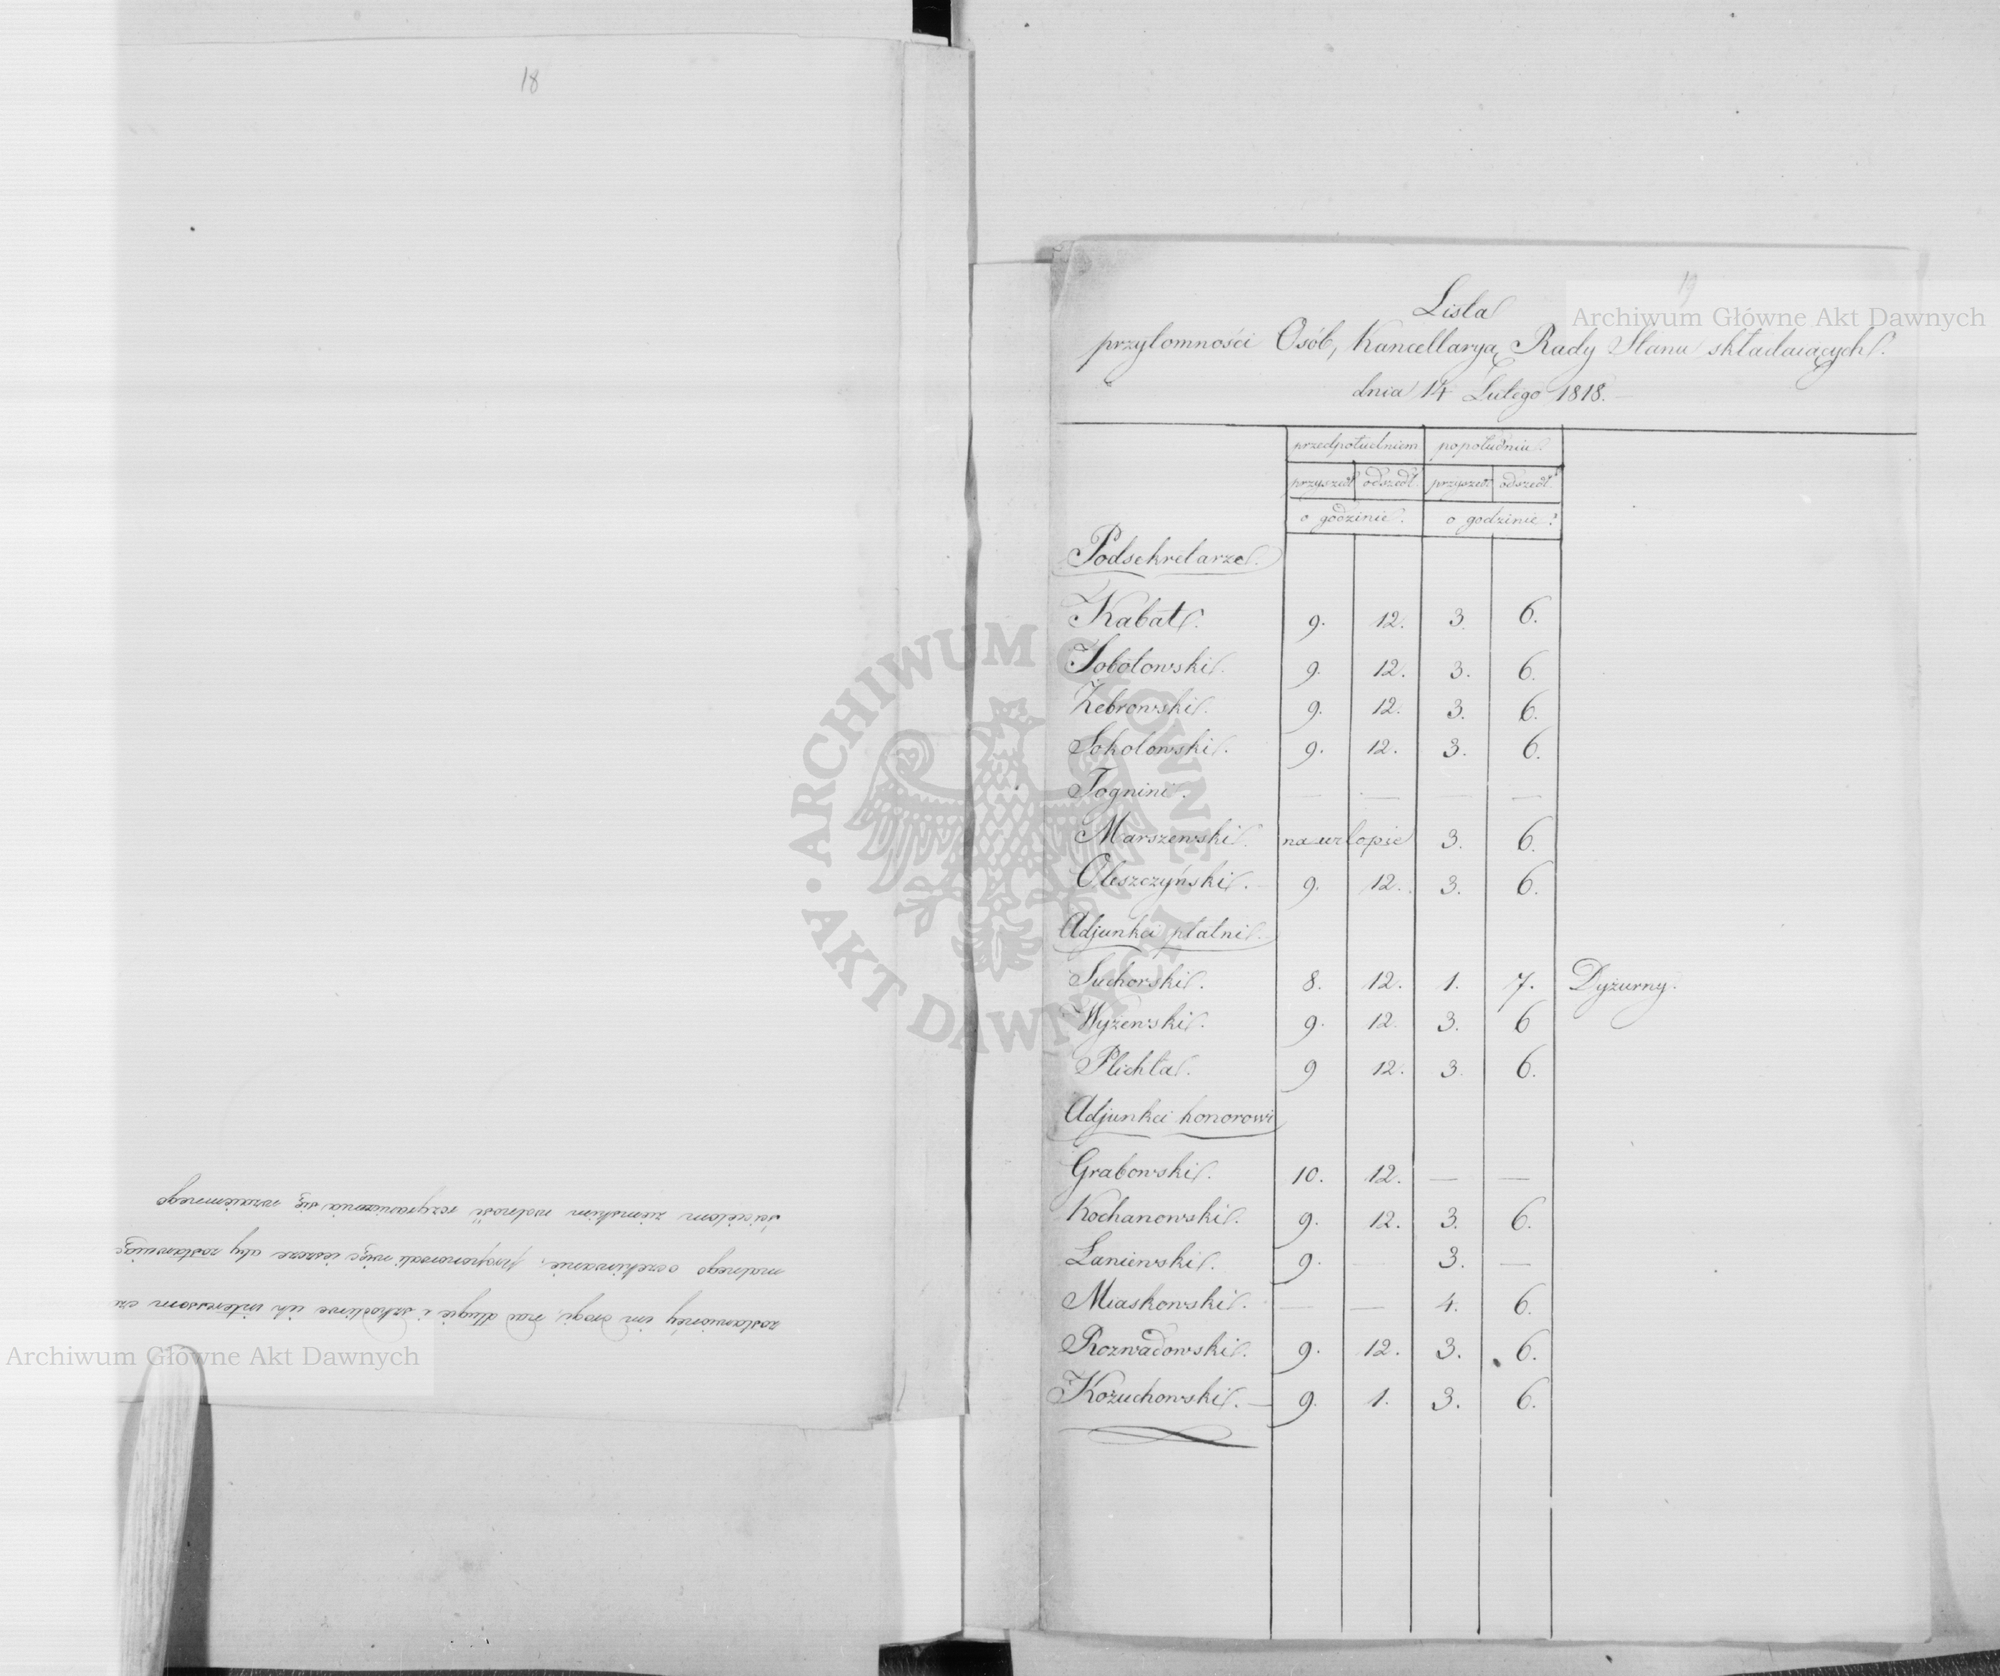 18
zostawionéy im drogi, na długie i szkodliwe ich interessom
malnego oczekiwanie; proponowali więc ieszcze aby zostawuiąc
ścicielom ziemskim wolność rozgraniczania się wzaiemnego
19
Lista
przytomności Osób, Kancellaryą Rady Stanu składaiących.
dnia 14 Lutego 1818.
przedpołudniem popołudniu.
przyszedł odszedł. przyszedł odszedł.
o godzinie. o godzinie.
Podsekretarze.
Kabat. 9. 12. 3. 6.
Sobolowski. 9. 12. 3. 6.
Żebrowski. 9. 12. 3. 6.
Sokolowski. 9. 12. 3. 6.
Tognini. — — — —
Marszewski. na urlopie 3. 6.
Oleszczyński. 9. 12. 3. 6.
Adjunkci płatni.
Suchorski. 8. 12. 1. 7. Dyżurny.
Wyżewski. 9. 12. 3. 6
Plichta. 9 12. 3. 6.
Adjunkci honorowi
Grabowski. 10. 12. — —
Kochanowski. 9. 12. 3. 6.
Łaniewski. 9. — 3. —
Miaskowski. — — 4. 6.
Rozwadowski. 9. 12. 3. 6.
Kożuchowski. 9. 1. 3. 6.
Archiwum Główne Akt Dawnych
Archiwum Główne Akt Dawnych
ARCHIWUM GŁÓWNE AKT DAWNYCH